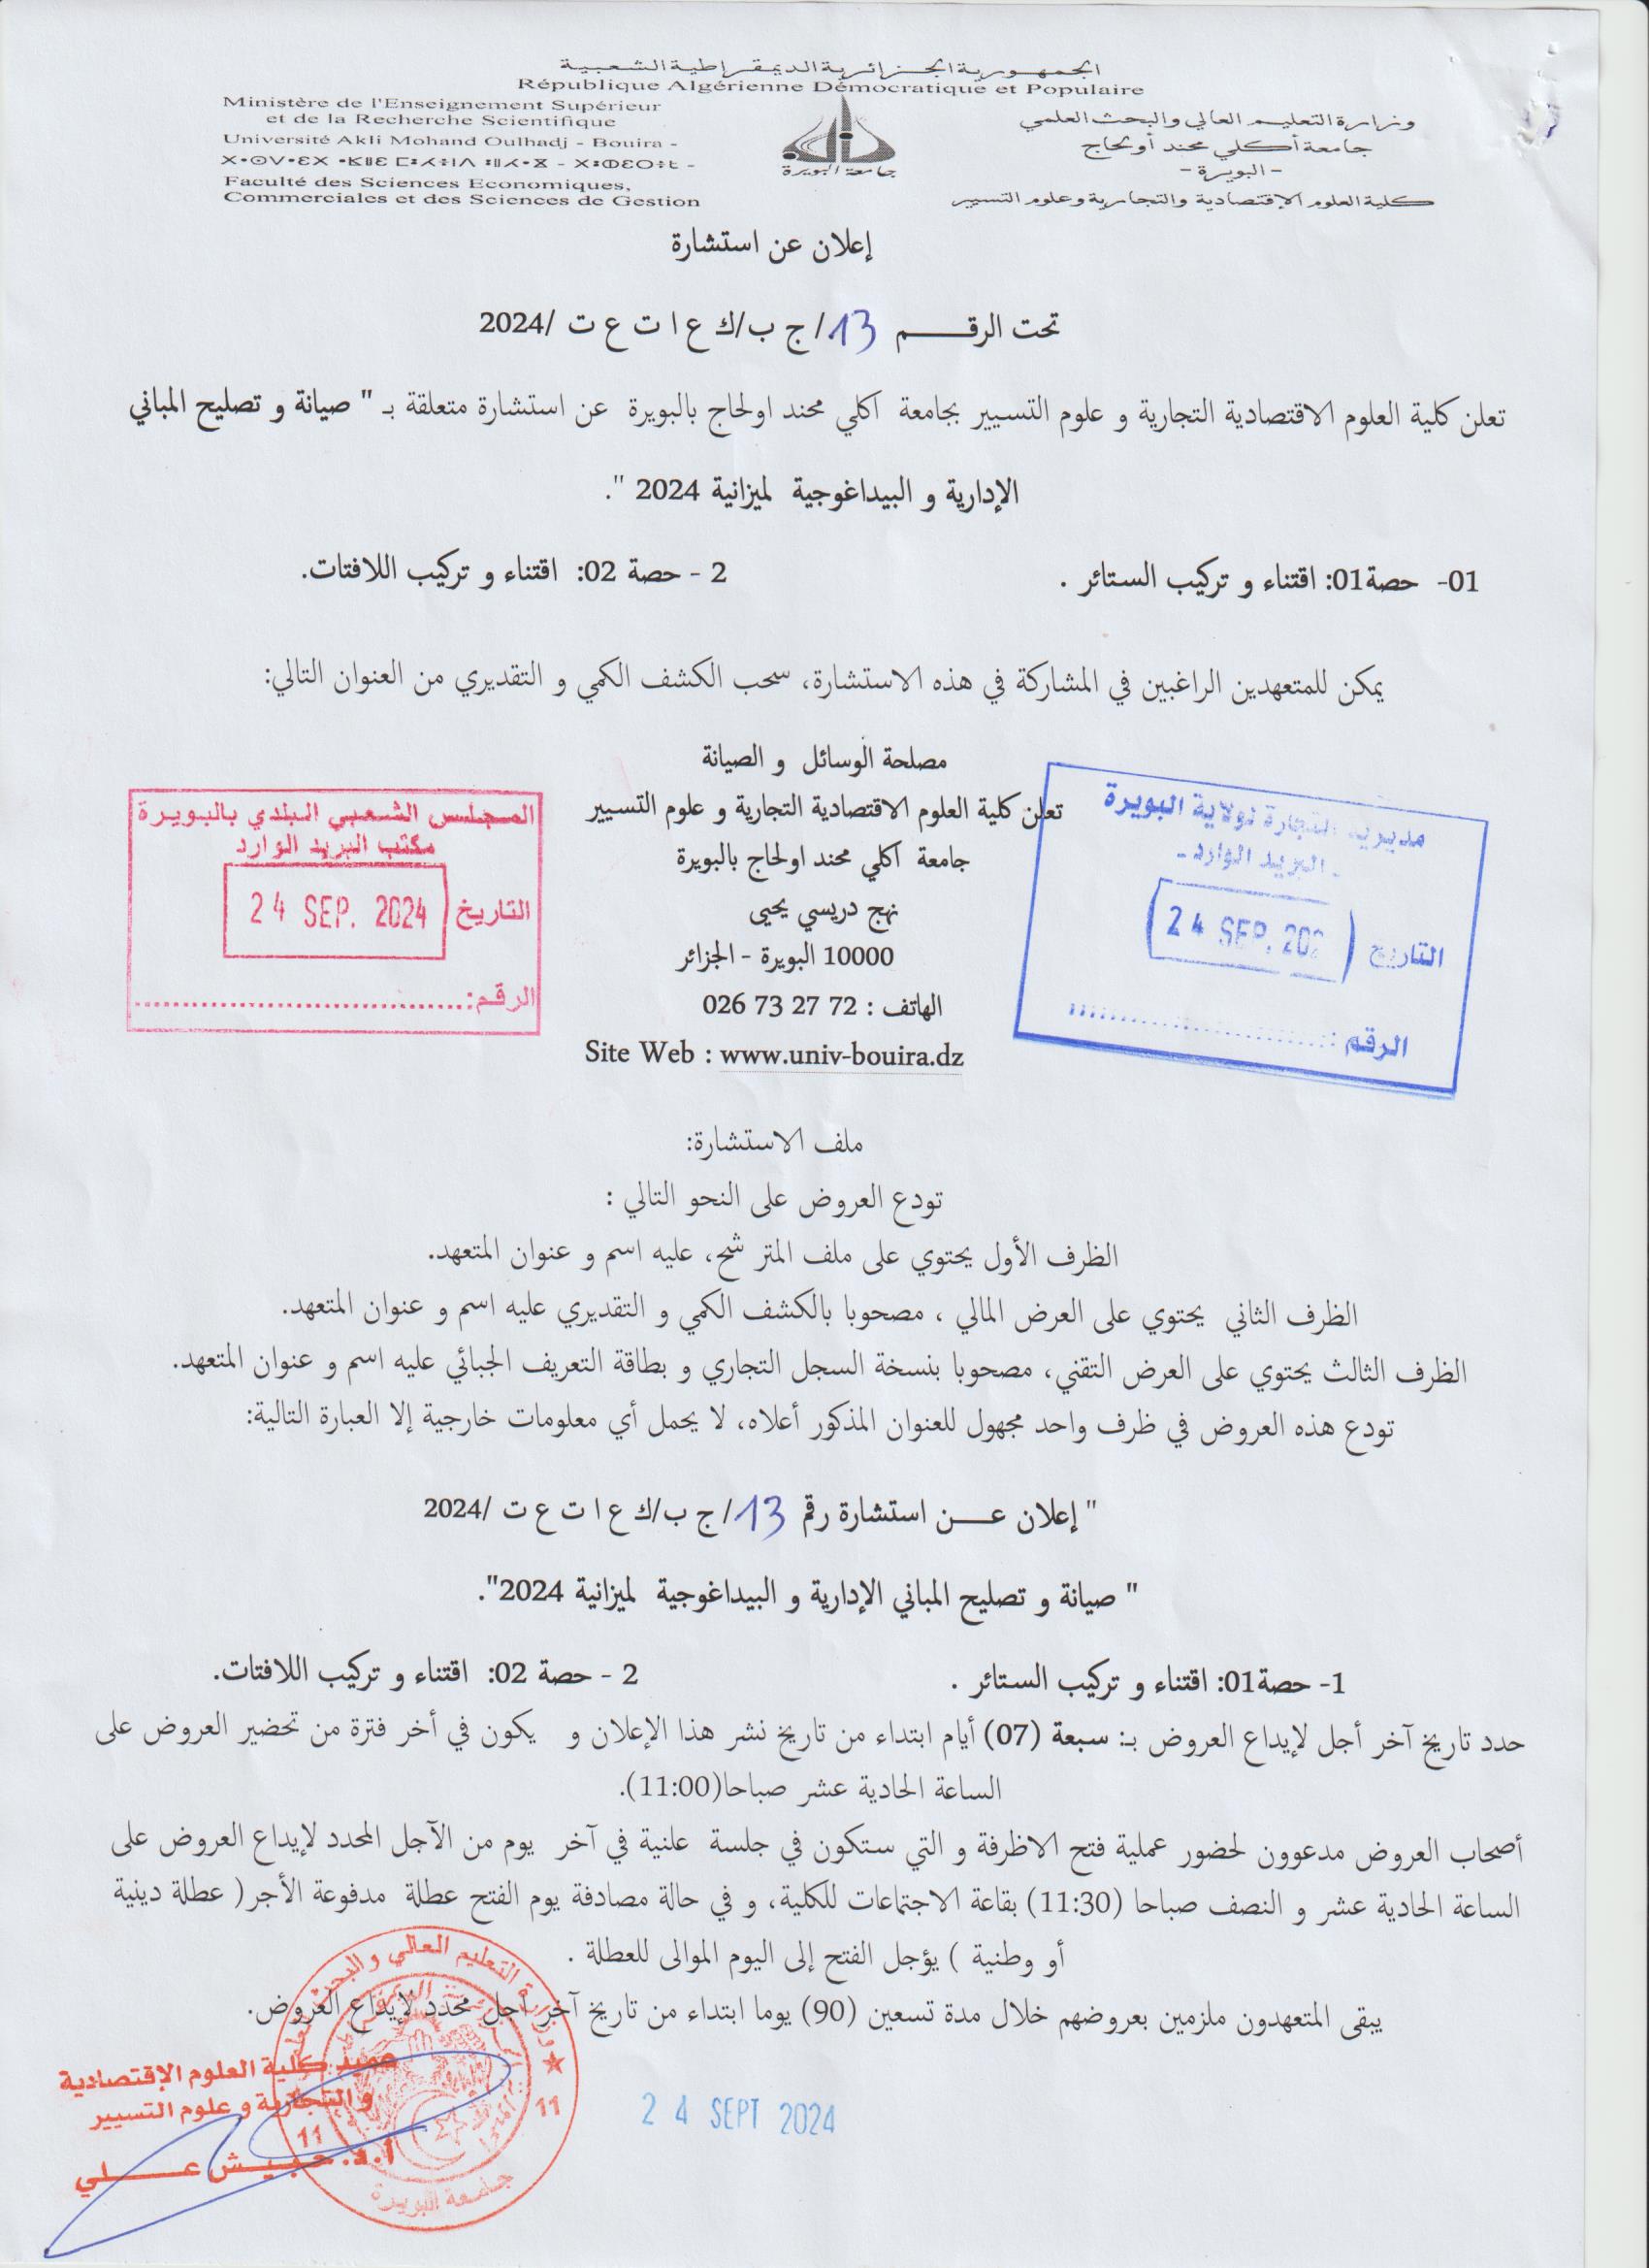 الجمهورية الجزائرية الديمقراطية الشعبية
République Algérienne Démocratique et Populaire
Ministère de l'Enseignement Supérieur
et de la Recherche Scientifique
Université Akli Mohand Oulhadj - Bouira -
ⵝⴰⵙⴷⴰⵡⵉⵝ
Faculté des Sciences Economiques,
Commerciales et des Sciences de Gestion
جامعة البويرة
وزارة التعليم العالي والبحث العلمي
جامعة أكلي محند أولحاج
- البويرة -
كلية العلوم الإقتصادية والتجارية وعلوم التسيير
إعلان عن استشارة
تحت الرقـــم 13/ ج ب/ك ع ا ت ع ت /2024
تعلن كلية العلوم الاقتصادية التجارية و علوم التسيير بجامعة اكلي محند اولحاج بالبويرة عن استشارة متعلقة بـ " صيانة و تصليح المباني
الإدارية و البيداغوجية لميزانية 2024 ".
01- حصة01: اقتناء و تركيب الستائر .
2 - حصة 02: اقتناء و تركيب اللافتات.
يمكن للمتعهدين الراغبين في المشاركة في هذه الاستشارة، سحب الكشف الكمي و التقديري من العنوان التالي:
مصلحة الوسائل و الصيانة
تعلن كلية العلوم الاقتصادية التجارية و علوم التسيير
جامعة اكلي محند اولحاج بالبويرة
نهج دريسي يحيى
10000 البويرة - الجزائر
الهاتف : 72 27 73 026
Site Web : www.univ-bouira.dz
مديرية التجارة لولاية البويرة
- البريد الوارد -
التاريخ
24 SEP. 202
الرقم :
المجلس الشعبي البلدي بالبويرة
مكتب البريد الوارد
التاريخ 24 SEP. 2024
الرقم:
ملف الاستشارة:
تودع العروض على النحو التالي :
الظرف الأول يحتوي على ملف المتر شح، عليه اسم و عنوان المتعهد.
الظرف الثاني يحتوي على العرض المالي ، مصحوبا بالكشف الكمي و التقديري عليه اسم و عنوان المتعهد.
الظرف الثالث يحتوي على العرض التقني، مصحوبا بنسخة السجل التجاري و بطاقة التعريف الجبائي عليه اسم و عنوان المتعهد.
تودع هذه العروض في ظرف واحد مجهول للعنوان المذكور أعلاه، لا يحمل أي معلومات خارجية إلا العبارة التالية:
" إعلان عـــن استشارة رقم 13/ ج ب/ك ع ا ت ع ت /2024
" صيانة و تصليح المباني الإدارية و البيداغوجية لميزانية 2024".
1- حصة01: اقتناء و تركيب الستائر .
2 - حصة 02: اقتناء و تركيب اللافتات.
حدد تاريخ آخر أجل لإيداع العروض بـ: سبعة (07) أيام ابتداء من تاريخ نشر هذا الإعلان و يكون في أخر فترة من تحضير العروض على
الساعة الحادية عشر صباحا(11:00).
أصحاب العروض مدعوون لحضور عملية فتح الاظرفة و التي ستكون في جلسة علنية في آخر يوم من الآجل المحدد لإيداع العروض على
الساعة الحادية عشر و النصف صباحا (11:30) بقاعة الاجتماعات للكلية، و في حالة مصادفة يوم الفتح عطلة مدفوعة الأجر( عطلة دينية
أو وطنية ) يؤجل الفتح إلى اليوم الموالى للعطلة .
يبقى المتعهدون ملزمين بعروضهم خلال مدة تسعين (90) يوما ابتداء من تاريخ آخر اجل محدد لإيداع العروض.
عميد كلية العلوم الإقتصادية
و التجارية و علوم التسيير
أ.د. حبيـش عـــلي
وزارة التعليم العالي و البحث العلمي
11
11
جامعة البويرة
24 SEPT 2024